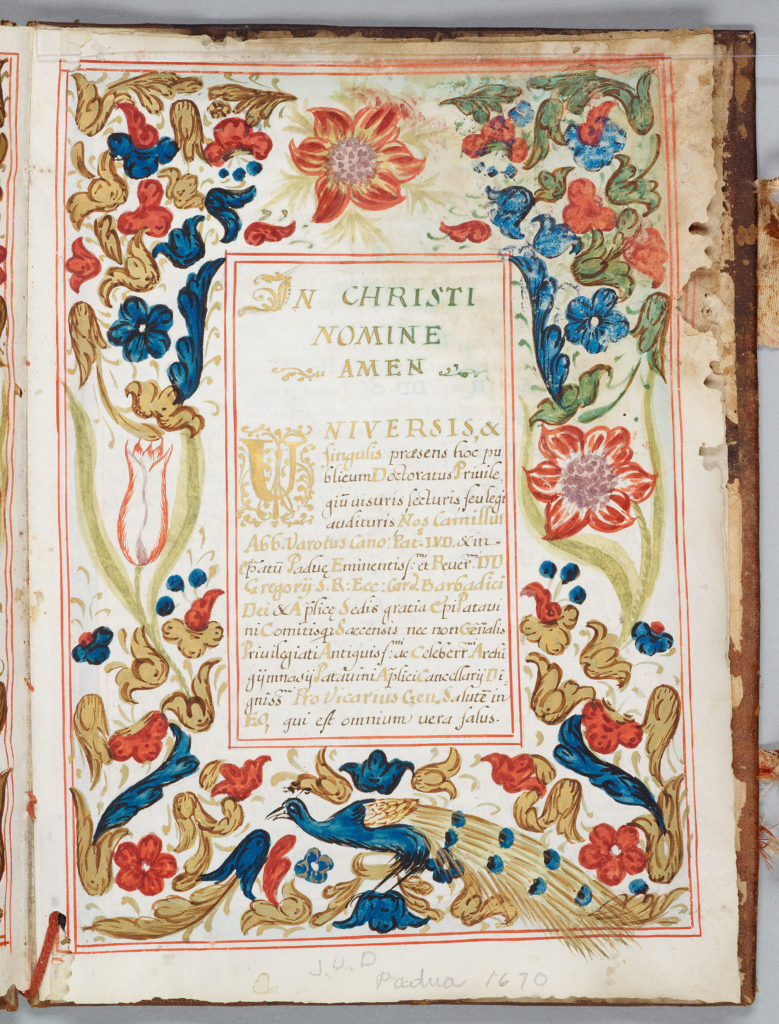 IN CHRISTI
NOMINE
AMEN
VNIVERSIS, &
singulis præsens hoc pu
blicum Doctoratus Privile
giũ uisuris lecturis seu legi
audituris Nos Camillus
Abb. Varotus Cano: Pat: I.V.D. & in
Ep̃atu Paduę Eminentiss:mi et Reuer:mi DD
Gregorij S. R: Ecc: Card. Barbadici
Dei & Aplicę Sedis gratia Epi Pataui
ni Comitisq3 Saccensis nec non Gen̄alis
Privilegiati Antiquiss:mi ac Celeberr:mi Archi
gymnasij Patauini Aplici Cancellarij Di
gniss:mi Pro Vicarius Gen, Salutẽ in
EO, qui est omnium uera salus.
J.U.D
Padua 1670